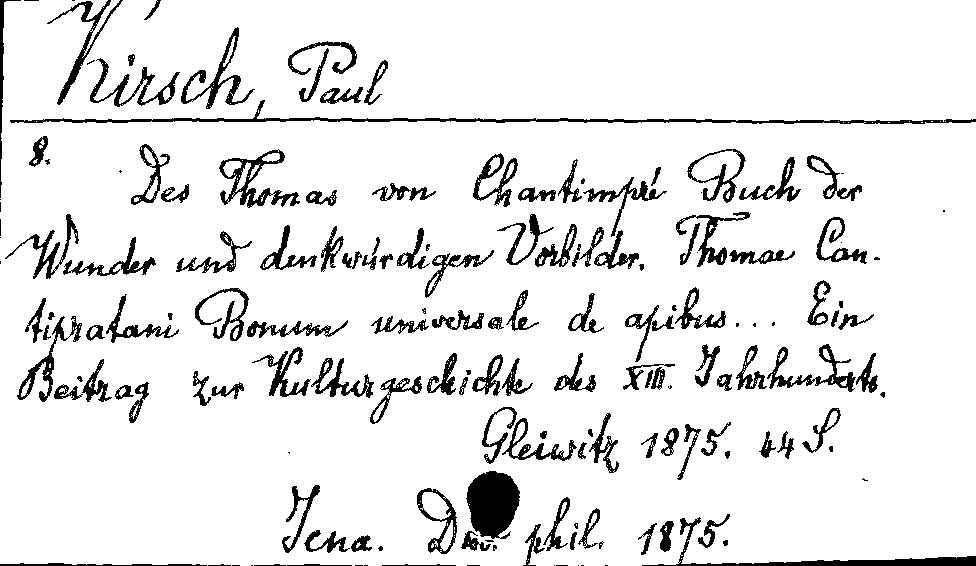 Kirsch, Paul
8.
Des Thomas von Chantimpré Buch der
Wunder und denkwürdigen Vorbilder. Thomae Can-
tipratani Bonum universale de apibus... Ein
Beitrag zur Kulturgeschichte des XIII. Jahrhunderts.
Gleiwitz 1875. 44 S.
Jena. phil. 1875.